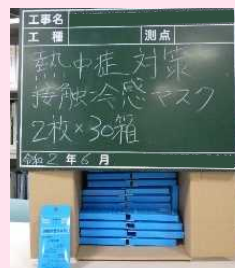 工事名
工種 測点
熱中症対策
接触冷感マスク
2枚×30箱
令和2年6月